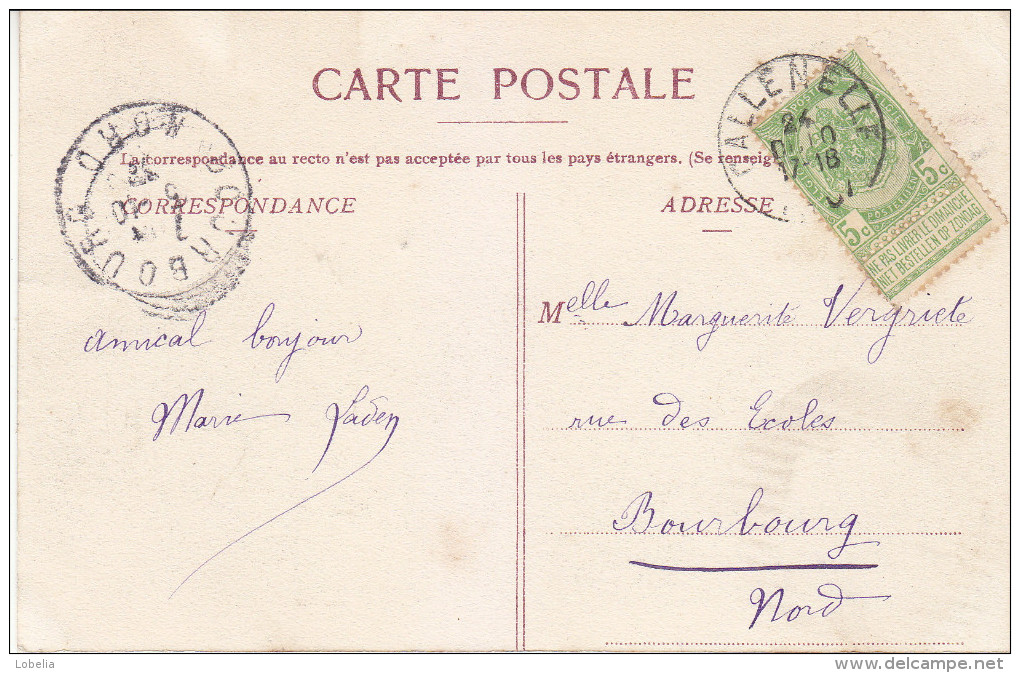 CARTE POSTALE
La correspondance au recto n'est pas acceptée par tous les pays étrangers. (Se renseig
CORRESPONDANCE
ADRESSE
CALLENELLE
24
17-18
5c 5c
NE PAS LIVRER LE DIMANCHE
NIET BESTELLEN OP ZONDAG
BOURBOURG NORD
amical bonjour
Marie
Melle Marguerite Vergriete
rue des Ecoles
Bourbourg
Nord
Lobelia
delcampe.net